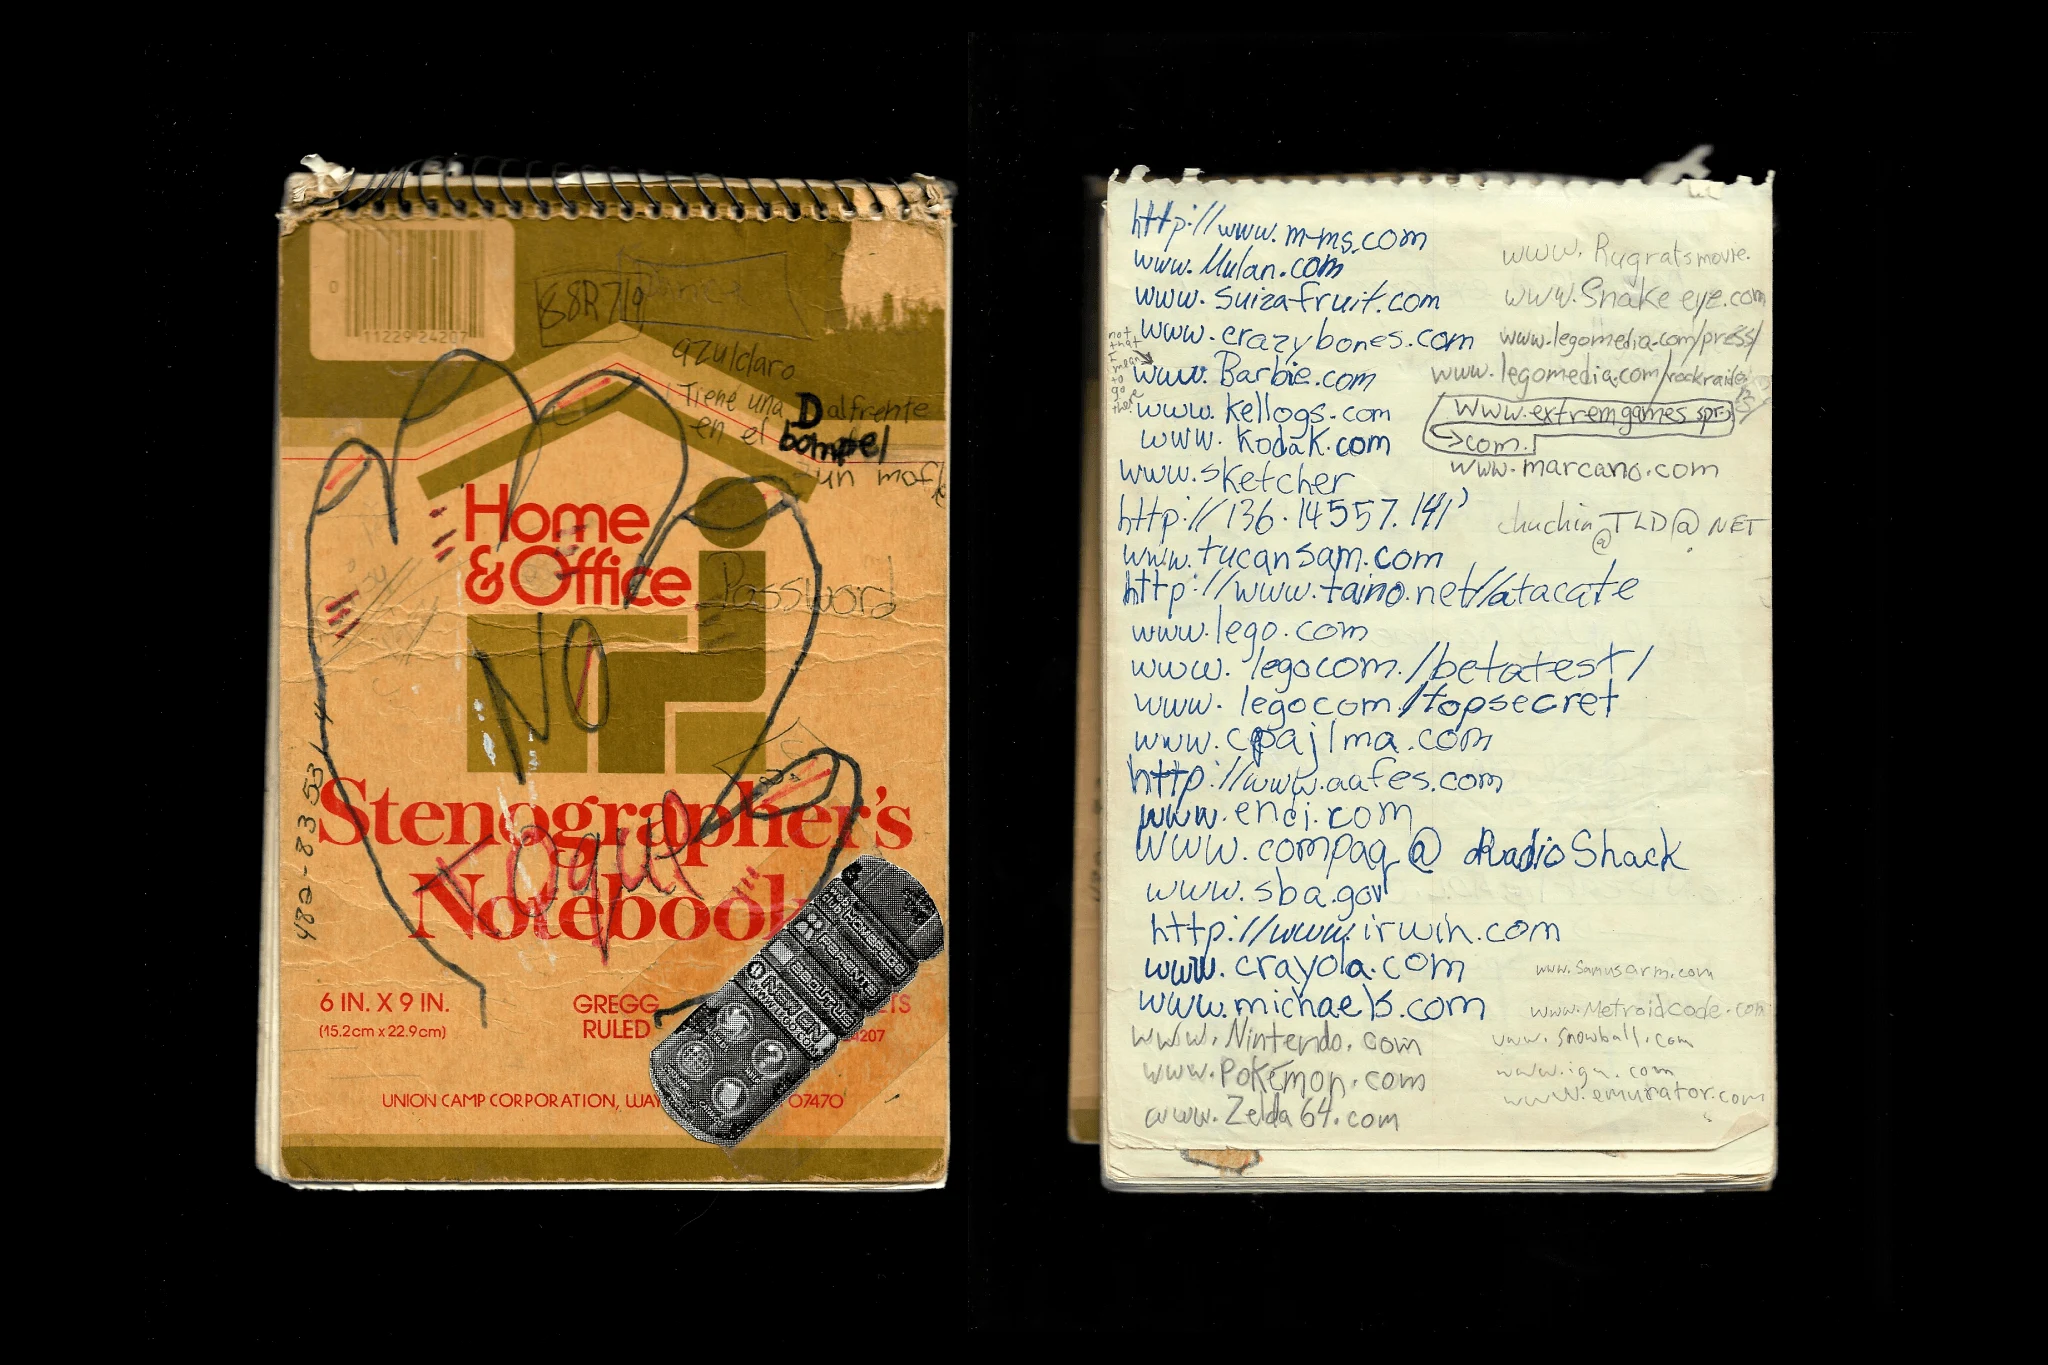 0
11229-24207
88R719
azulclaro
Tiene una D alfrente
en el bompel
un mofle
Home
& Office
Password
NO
Toque
482-8353
Stenographer's
Notebook
6 IN. X 9 IN.
(15.2cm x 22.9cm)
GREGG
RULED
ETS
4207
UNION CAMP CORPORATION, WA
07470
HOMEPAGE
PARENTS
ABOUT US
NEW ON
http://www.m-ms.com
www.Mulan.com
www.suizafruit.com
www.crazybones.com
not that I mean to go there
www.Barbie.com
www.kellogs.com
www.Kodak.com
www.sketcher
http://136.14557.141'
www.tucansam.com
http://www.taino.net/atacate
www.lego.com
www.legocom./betatest/
www.legocom/topsecret
www.cpajlma.com
http://www.aafes.com
www.enci.com
www.compaq@RadioShack
www.sba.gov
http://www.irwin.com
www.crayola.com
www.michaels.com
www.Nintendo.com
www.Pokémon.com
www.Zelda64.com
www.Rugratsmovie.
www.Snakeeye.com
www.legomedia.com/press/
www.legomedia.com/rockraide
www.extremgames.spr.
com.
www.marcano.com
chuchin@TLD@NET
www.Samusarm.com
www.Metroidcode.com
www.snowball.com
www.ign.com
www.emurator.com